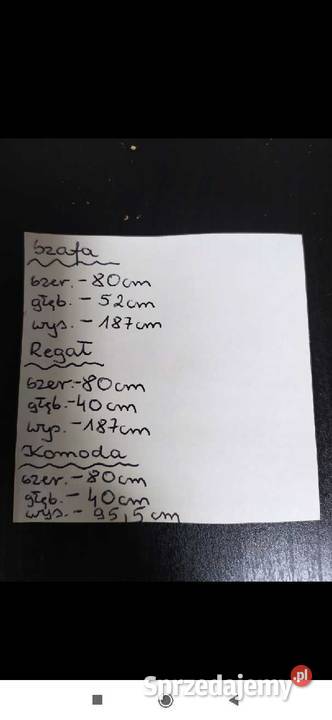 Szafa
szer. - 80cm
głęb. - 52cm
wys. - 187cm
Regał
szer. - 80cm
głęb. - 40cm
wys. - 187cm
Komoda
szer. - 80cm
głęb. - 40cm
wys. - 95,5cm
Sprzedajemy.pl